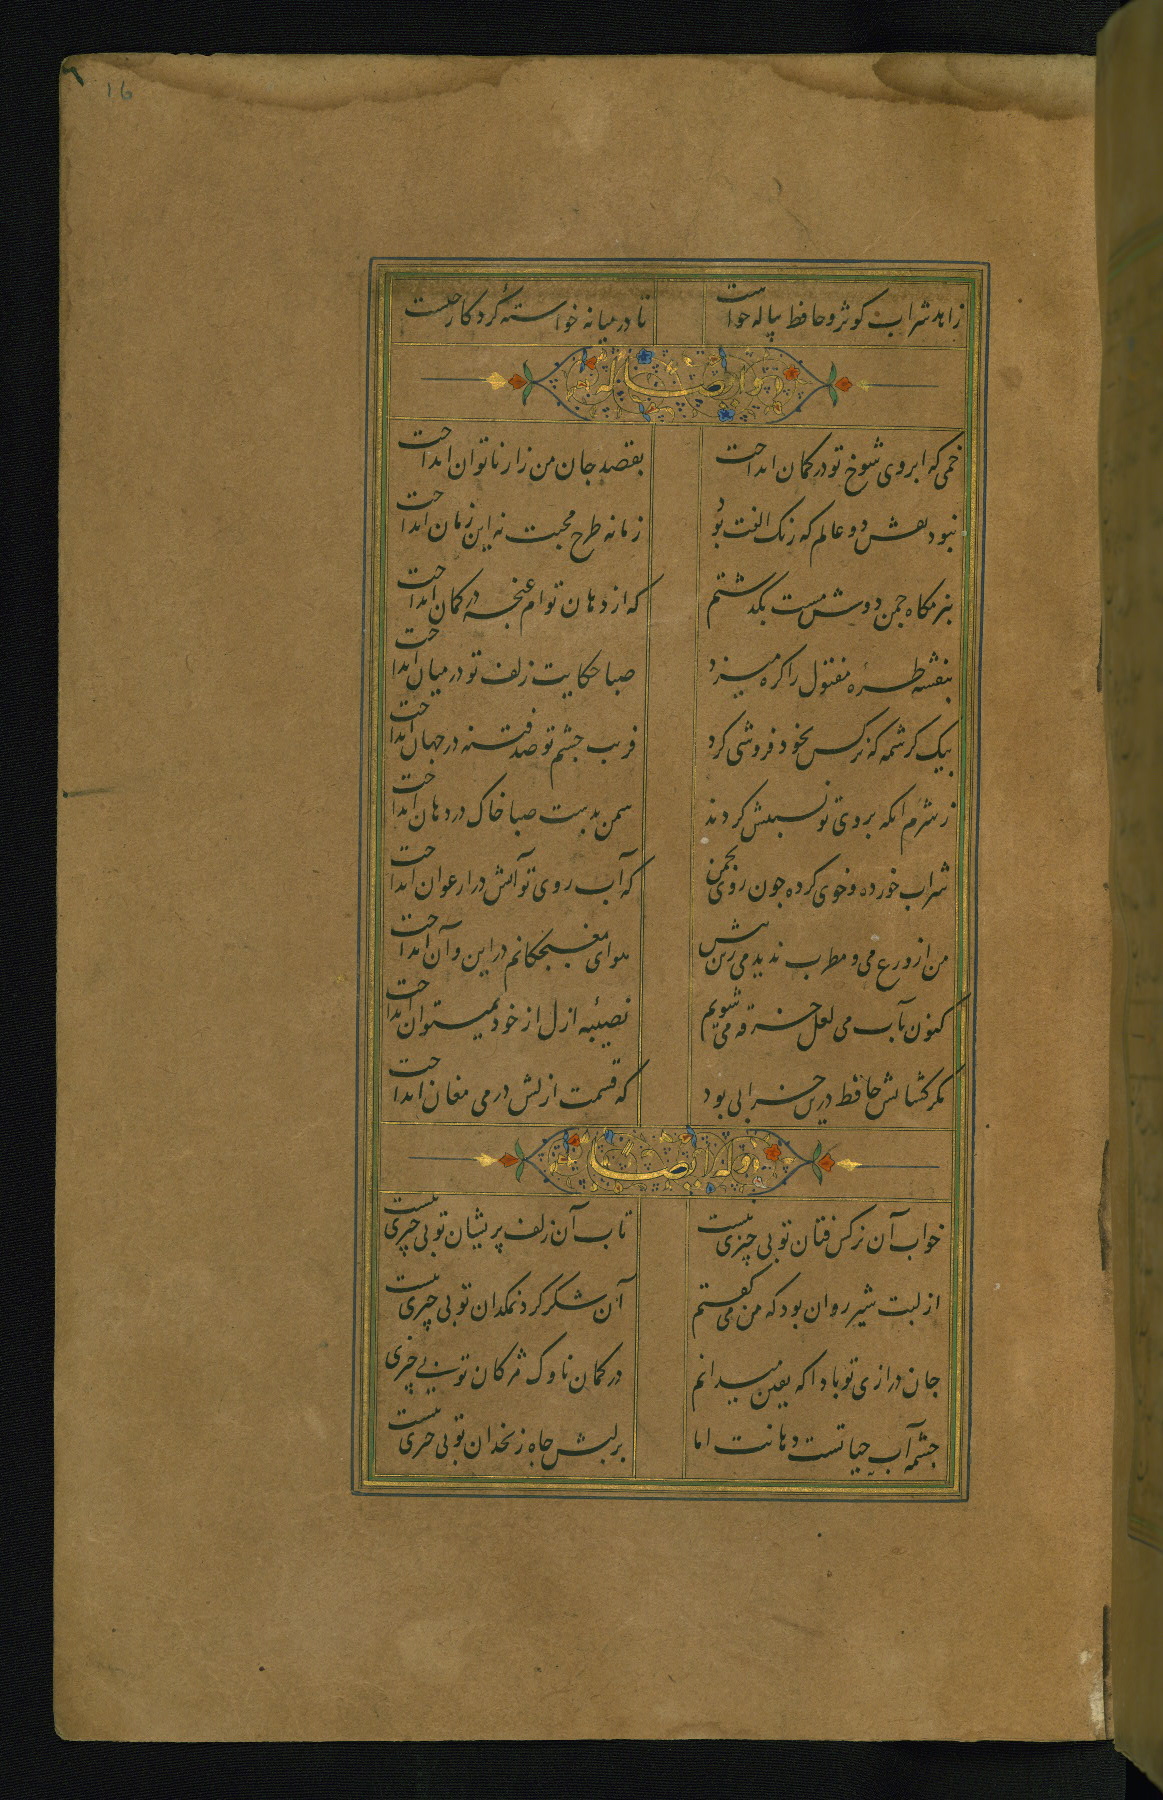 16
زاهد شراب کوثر و حافظ پیاله خواست تا در میانه خواستهٔ کردکار چیست
وله ایضا
خمی که ابروی شوخ تو در کمان انداخت بقصد جان من زار ناتوان انداخت
نبود نقش دو عالم که رنک الفت بود زمانه طرح محبت نه این زمان انداخت
ببزمکاه جمن دوش مست بکذشتم که از دهان توام غنجه در کمان انداخت
بنفشه طرهٔ مفتول را کره میزد صبا حکایت زلف تو در میان انداخت
بیک کرشمه که نرکس بخود فروشی کرد فریب جشم تو صد فتنه در جهان انداخت
ز شرم انکه بروی تو نسبتش کردند سمن بدست صبا خاک در دهان انداخت
شراب خورده و خوی کرده جون روی بجمن که آب روی تو آتش در ارغوان انداخت
من از ورع می و مطرب ندیدمی زین پیش هوای مغبجکانم در این و آن انداخت
کنون بآب می لعل خرقه می شویم نصیبهٔ ازل از خود نمیتوان انداخت
مکر کشایش حافظ درین خرابی بود که قسمت ازلش در می مغان انداخت
وله ایضا
خواب آن نرکس فتان تو بی چیزی نیست تاب آن زلف پریشان تو بی چیزی نیست
از لبت شیر روان بود که من می کفتم آن شکر کرد نمکدان تو بی چیزی نیست
جان درازی تو بادا که یقین میدانم در کمان ناوک مژکان تو بی چیزی
جشمه آب حیاتست دهانت اما بر لبش جاه زنخدان تو بی چیزی نیست